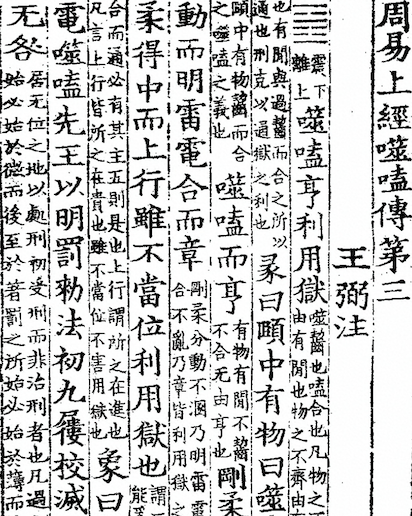 周易上經噬嗑傳第三
王弼注
䷔
震下
離上
噬嗑亨利用獄
噬齧也嗑合也凡物之
由有閒也物之不齊由有
也有閒與過齧而合之所以
通也刑克以通獄之利也
彖曰頤中有物曰噬
頤中有物齧而合
之噬嗑之義也
噬嗑而亨
有物有閒不齧
不合无由亨也
剛柔
動而明雷電合而章
剛柔分動不溷乃明雷電
合不亂乃章皆利用獄之
柔得中而上行雖不當位利用獄也
謂
能
合而通必有其主五則是也上行謂所之在進也
凡言上行皆所之在貴也雖不當位不害用獄也
象曰
電噬嗑先王以明罰勑法初九屨校滅
无咎
居无位之地以處刑初受刑而非治刑者也凡過
始必始於微而後至於著罰之所始必始於薄而